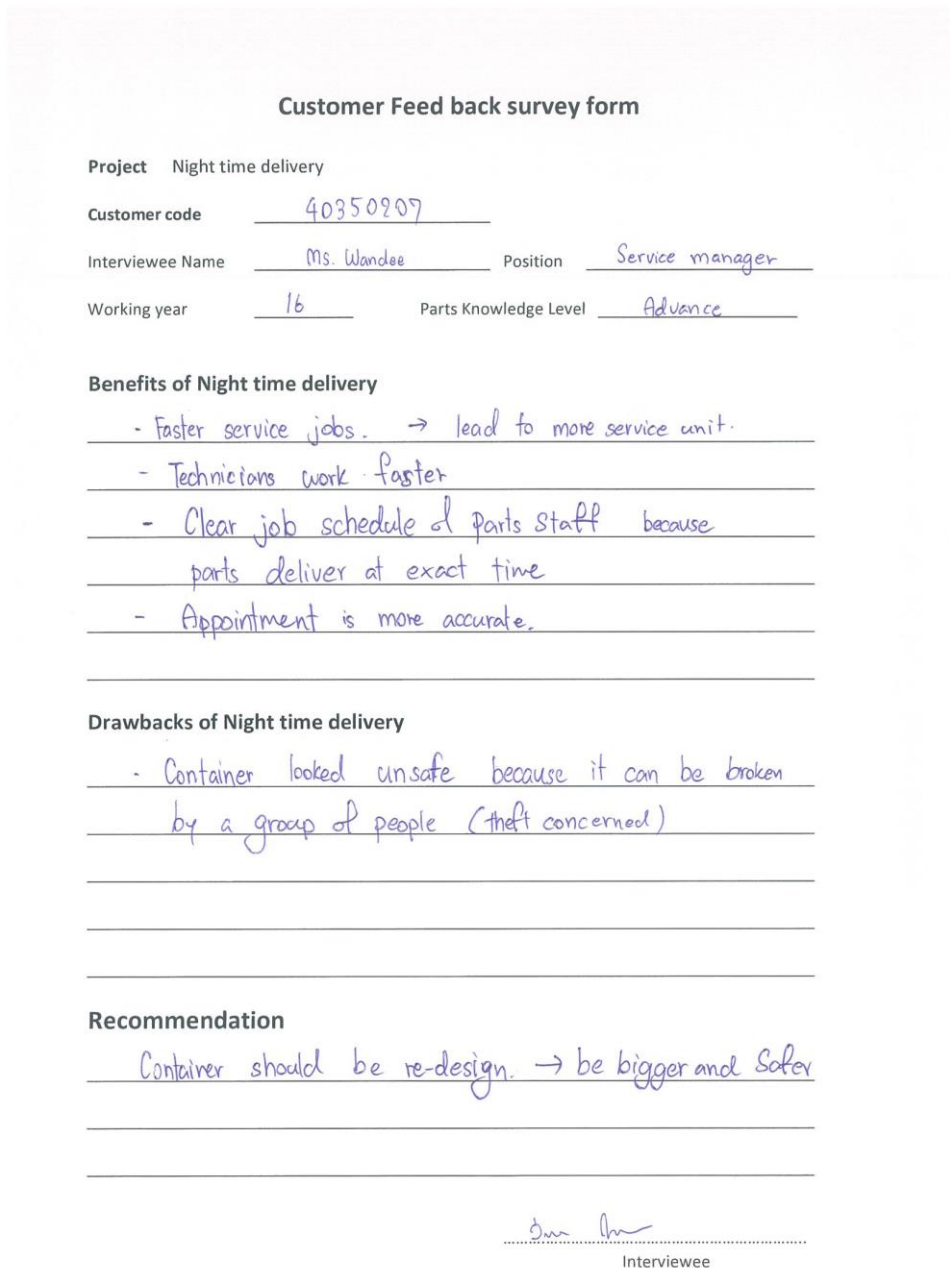 Customer Feed back survey form
Project Night time delivery
Customer code 40350207
Interviewee Name Ms. Wandee Position Service manager
Working year 16 Parts Knowledge Level Advance
Benefits of Night time delivery
- Faster service jobs. → lead to more service unit.
- Technicians work faster
- Clear job schedule of Parts Staff because
parts deliver at exact time
- Appointment is more accurate.
Drawbacks of Night time delivery
- Container looked unsafe because it can be broken
by a group of people (theft concerned)
Recommendation
Container should be re-design. → be bigger and Safer
Interviewee